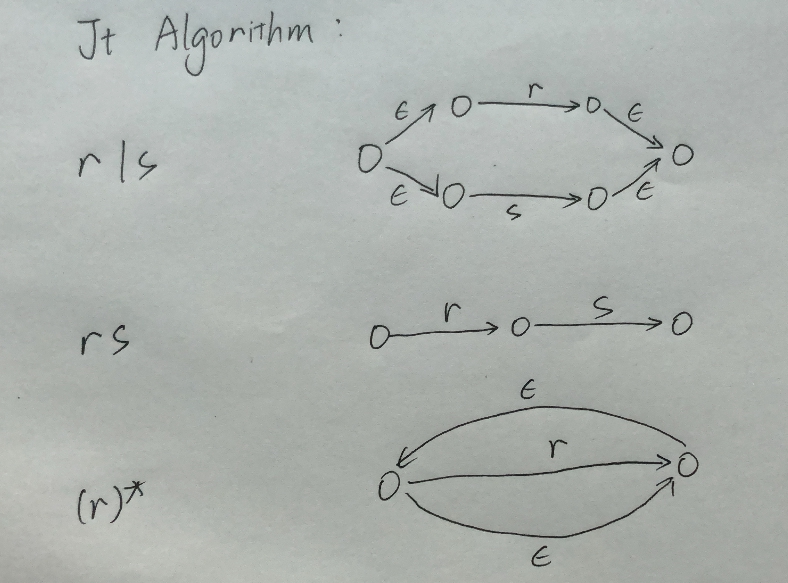 Jt Algorithm :
r|s
ϵ r ϵ
ϵ s ϵ
rs
r s
(r)*
ϵ
r
ϵ